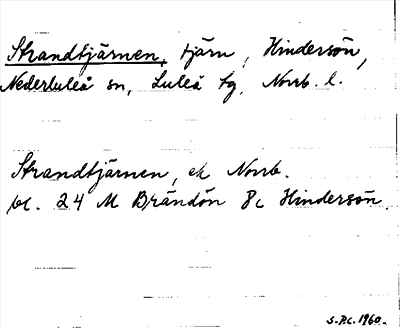 Strandtjärnen, tjärn, Hindersön,
Nederluleå sn, Luleå tg, Norrb. l.
Strandtjärnen, ek Norrb.
bl. 24 M Brändön 8c Hindersön.
S.P.C. 1960.